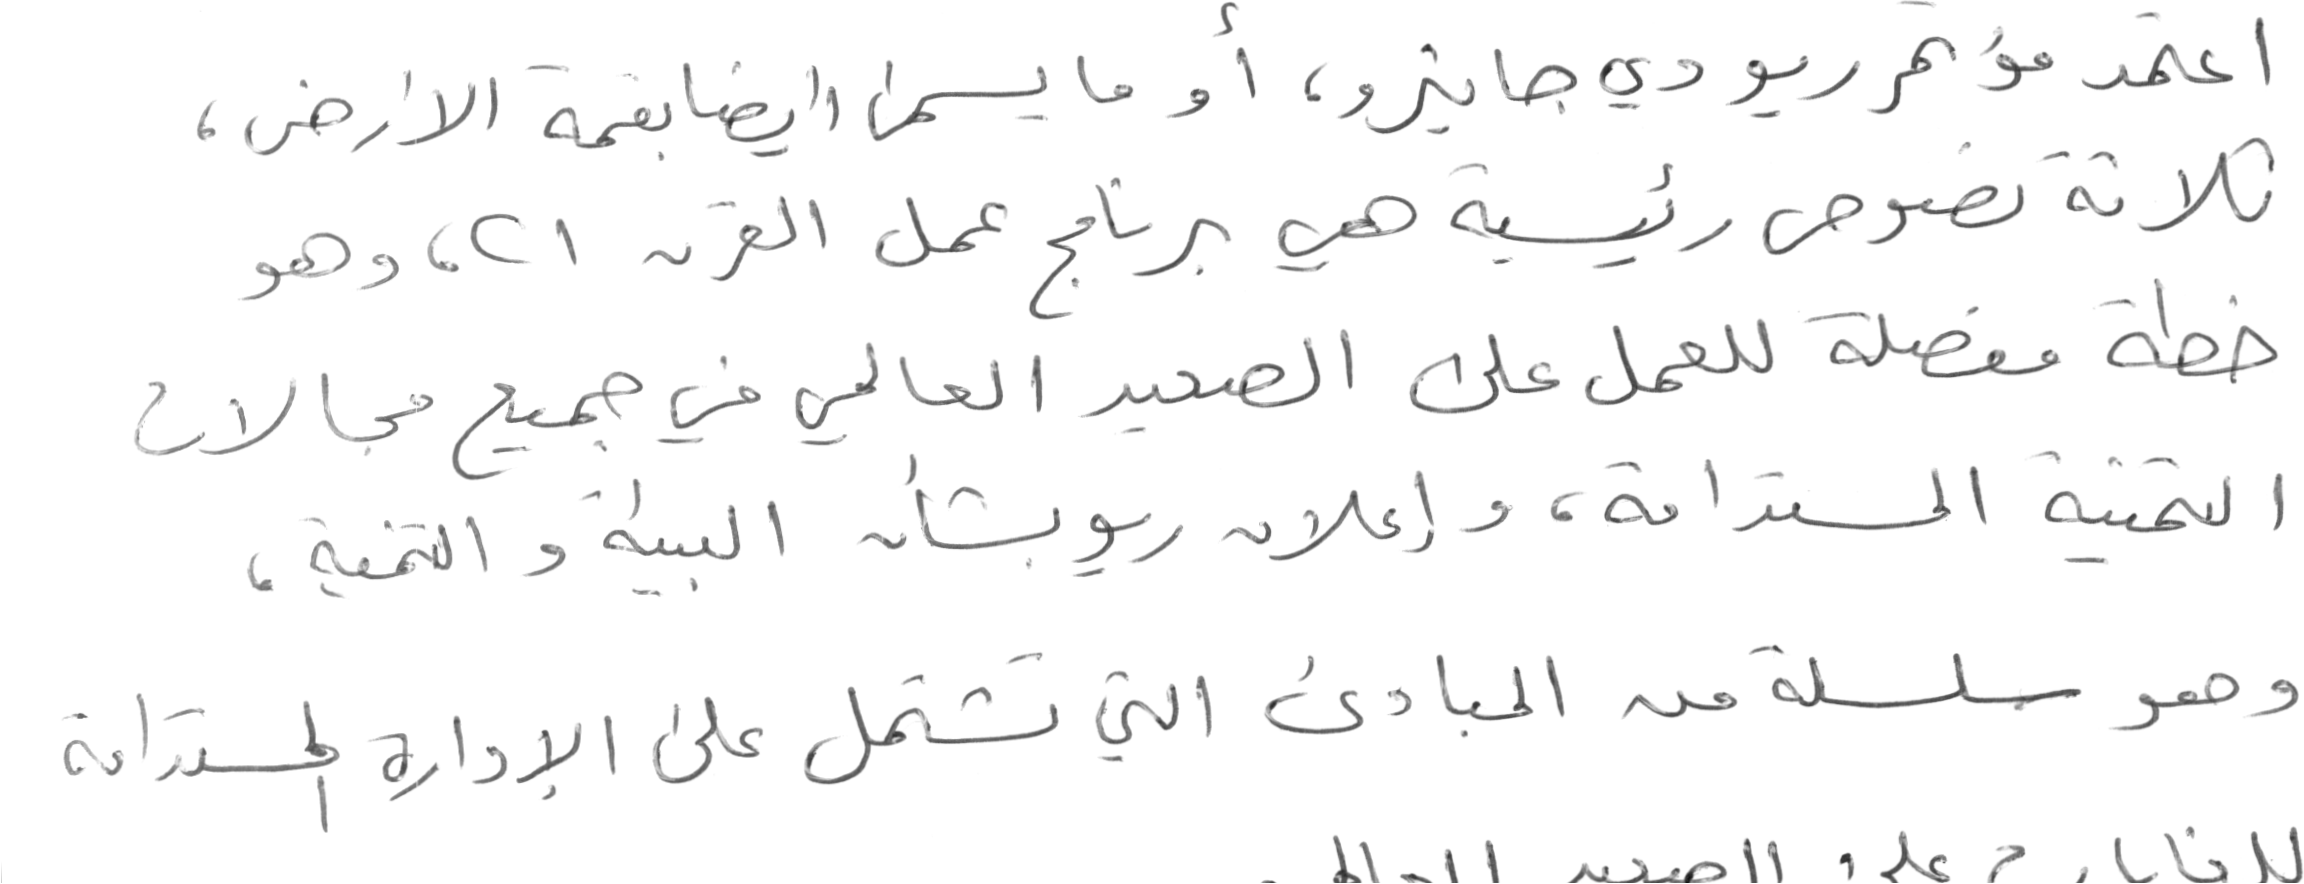 اعتمد مؤتمر ريو دي جانيرو، أو ما يسمى أيضا بقمة الأرض،
ثلاثة نصوص رئيسية هي برنامج عمل القرن ٢١، وهو
خطة مفصلة للعمل على الصعيد العالمي في جميع مجالات
التنمية المستدامة، وإعلان ريو بشأن البيئة والتنمية،
وهو سلسلة من المبادئ التي تشتمل على الإدارة المستدامة
للغابات على الصعيد العالمي